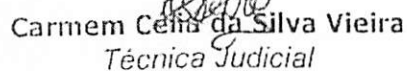 Carmem Celia da Silva Vieira
Técnica Judicial